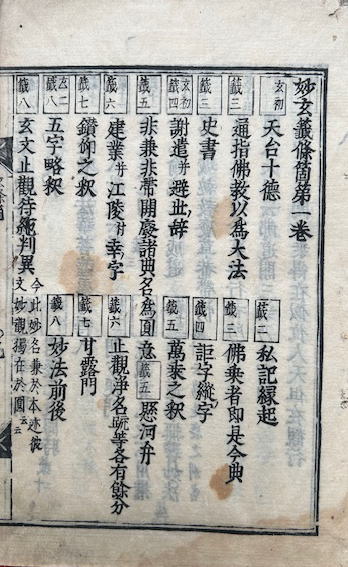 妙玄籤條箇第一卷
玄初 天台十德 籤二 私記縁起
籤三 通指佛教以爲大法 籤三 佛乘者即是今典
籤三 史書 籤四 詎字縱字
玄初 籤四 謝遣并避辞 籤五 萬乘之釈
籤五 非兼非帶開廢諸典名爲圓意 籤五 懸河弁
籤六 建業并江陵付幸字 籤六 止觀淨名疏等各有餘分
籤七 鑽仰之釈 籤七 甘露門
玄二 籤八 五字略釈 籤八 妙法前後
籤八 玄文止觀待絶判異 今此妙名兼於本迹彼
文妙觀獨在於圓云云